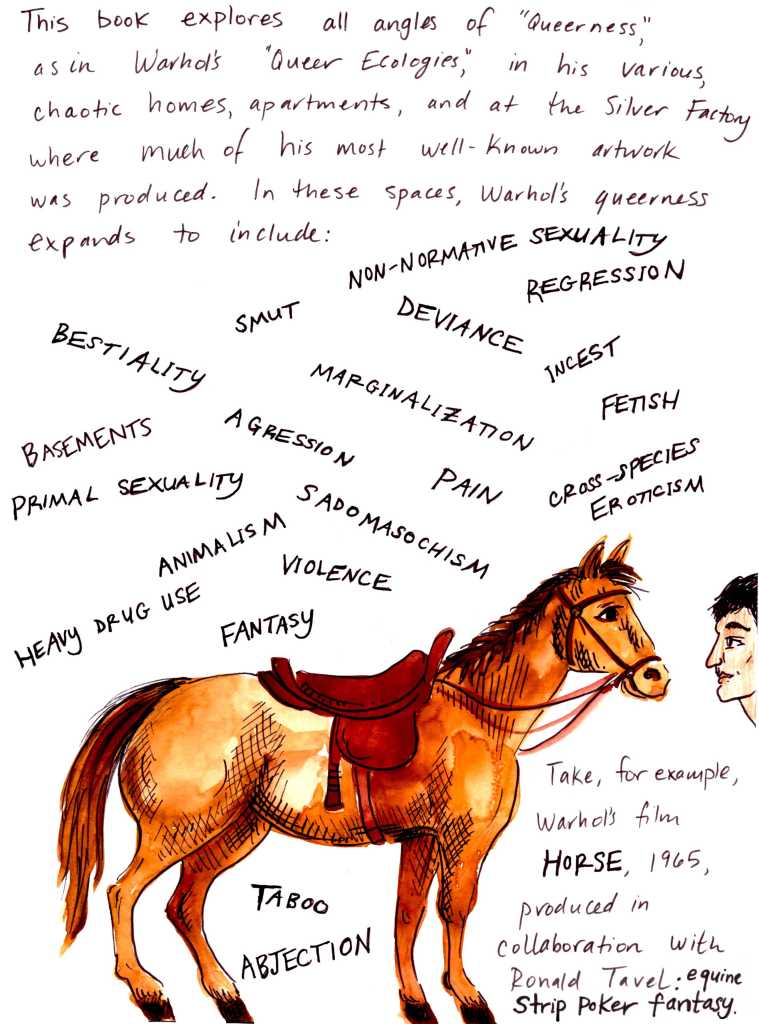 This book explores all angles of "Queerness,"
as in Warhol's "Queer Ecologies," in his various,
chaotic homes, apartments, and at the Silver Factory
where much of his most well-known artwork
was produced. In these spaces, Warhol's queerness
expands to include:
NON-NORMATIVE SEXUALITY
REGRESSION
SMUT
DEVIANCE
BESTIALITY
INCEST
MARGINALIZATION
FETISH
BASEMENTS
AGRESSION
PRIMAL SEXUALITY
PAIN
CROSS-SPECIES
EROTICISM
SADOMASOCHISM
ANIMALISM
VIOLENCE
HEAVY DRUG USE
FANTASY
Take, for example,
Warhol's film
HORSE, 1965,
produced in
collaboration with
Ronald Tavel: equine
Strip Poker fantasy.
TABOO
ABJECTION